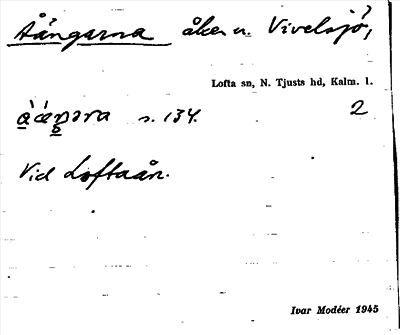 Åängarna åker u. Vivelsjö,
Lofta sn, N. Tjusts hd, Kalm. l.
s. 134. 2
Vid Loftaån.
Ivar Modéer 1945